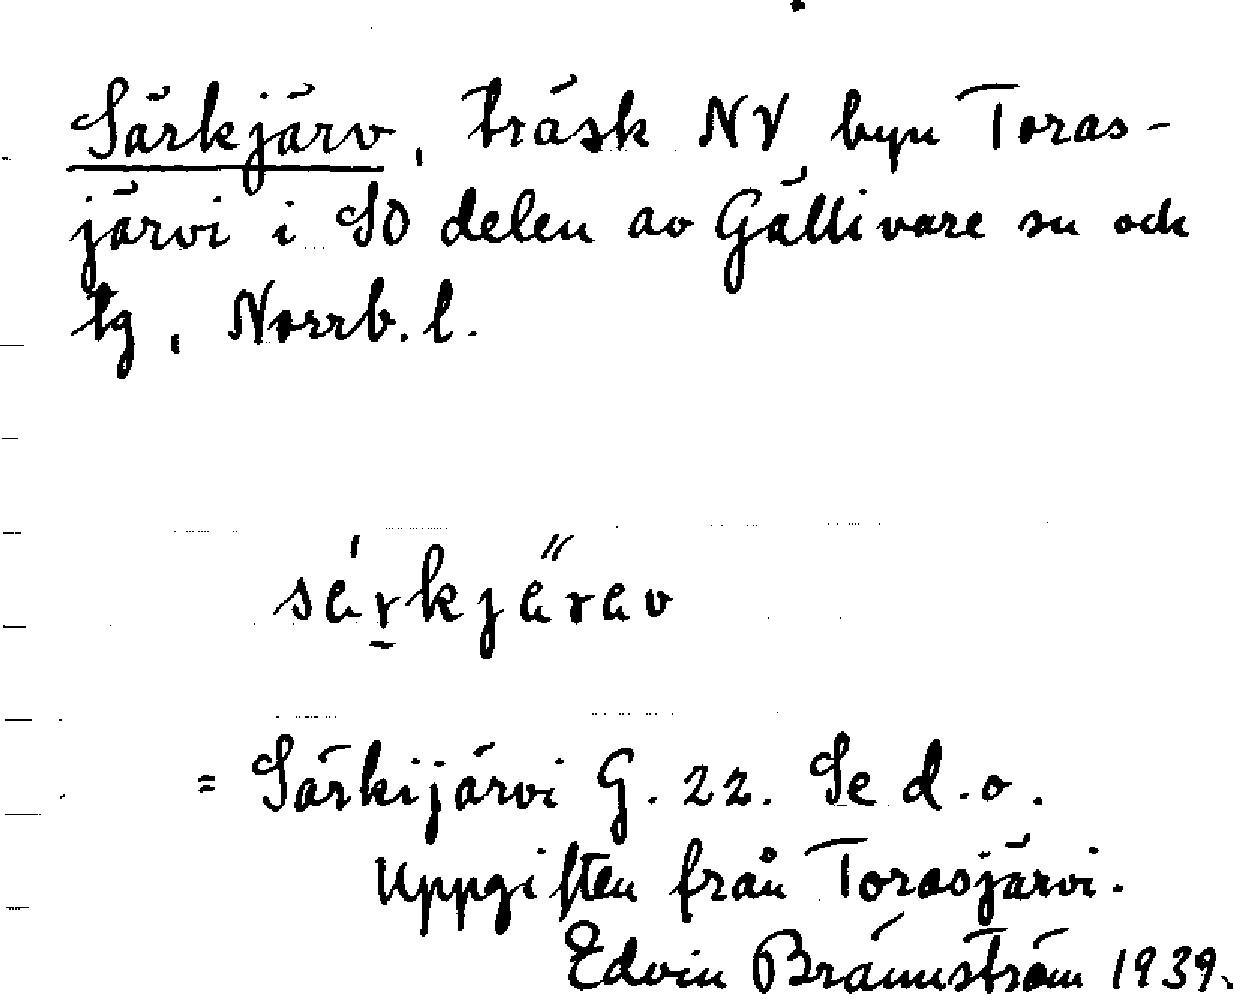 Särkjärv, träsk NV byn Toras-
järvi i SO delen av Gällivare sn och
tg, Norrb. l.
= Särkijärvi G. 22. Se d.o.
Uppgiften från Torasjärvi.
Edvin Brännström 1939.